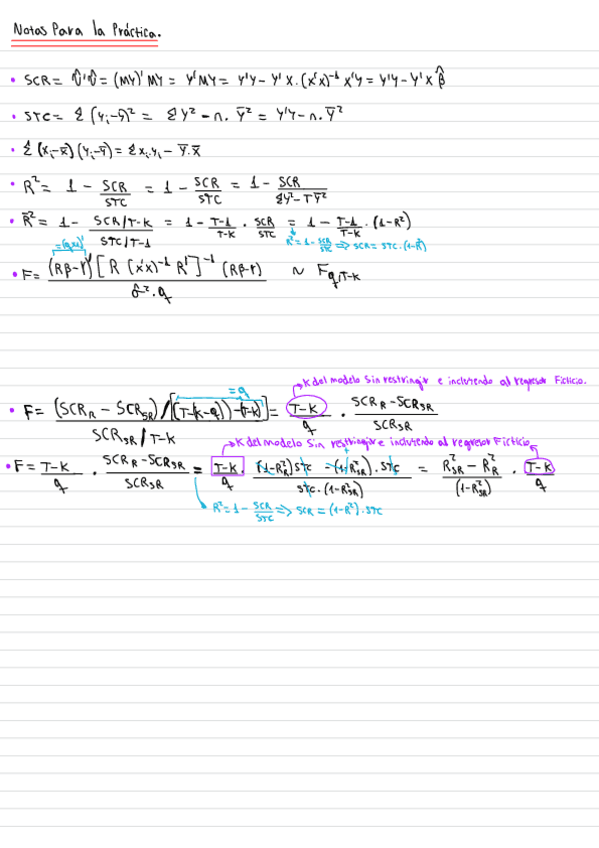 Notas Para la Práctica.
• SCR = Û'Û = (MY)' MY = Y'MY = Y'Y - Y'X.(X'X)⁻¹ X'Y = Y'Y - Y'X β̂
• STC = Σ (Yᵢ-Ȳ)² = ΣY² - n.Ȳ² = Y'Y - n.Ȳ²
• Σ(xᵢ-x̄)(yᵢ-ȳ) = Σxᵢ.yᵢ - Ȳ.x̄
• R² = 1 - SCR/STC = 1 - SCR/STC = 1 - SCR/ΣY²-TȲ²
• R̄² = 1 - (SCR/T-K)/(STC/T-1) = 1 - T-1/T-K . SCR/STC = 1 - T-1/T-K . (1-R²)
R² = 1 - SCR/STC => SCR = STC.(1-R²)
• F = (Rβ-r)'[R (X'X)⁻¹ R']⁻¹ (Rβ-r) / σ̂².q ~ Fq,T-K
K del modelo Sin restringir e incluiendo al regresor Ficticio.
= q
• F = (SCR_R - SCR_SR)/[(T-(K-q))-(T-K)] / SCR_SR/T-K = T-K/q . SCR_R - SCR_SR/SCR_SR
K del modelo Sin restringir e incluiendo al regresor Ficticio
• F = T-K/q . SCR_R - SCR_SR/SCR_SR = T-K/q . (1-R²_R)STC - (1-R²_SR).STC/STC.(1-R²_SR) = R²_SR - R²_R/(1-R²_SR) . T-K/q
R² = 1 - SCR/STC => SCR = (1-R²).STC